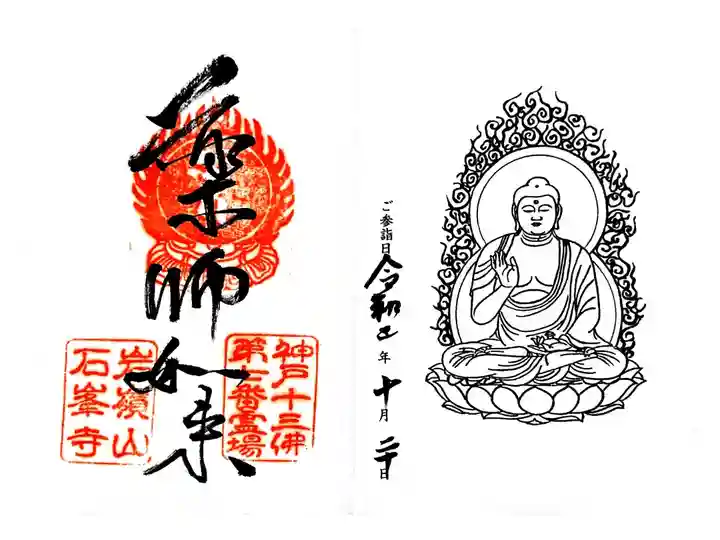 ご参詣日 令和 年 十月 二十日
神戸十三佛
第七番霊場
薬師如来
岩嶺山
石峯寺